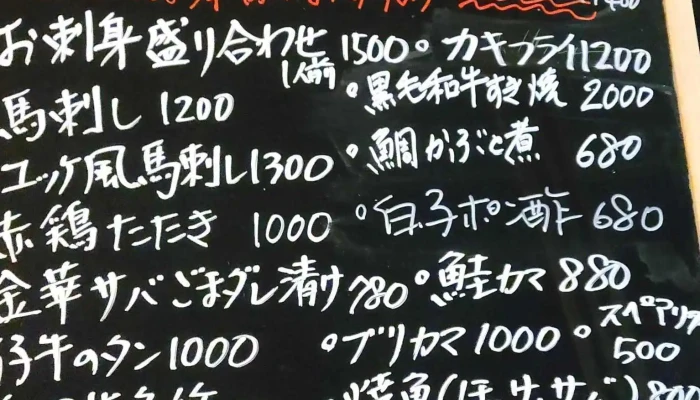 お刺身盛り合わせ 1人前 1500
馬刺し 1200
ユッケ風馬刺し 1300
赤鶏たたき 1000
金華サバごまダレ漬け 780
仔牛のタン 1000
。カキフライ 1200
。黒毛和牛すき焼 2000
。鯛かぶと煮 680
。白子ポン酢 680
。鮭カマ 880
。ブリカマ 1000
。スペアリブ 500
焼魚(ほっけ,サバ) 800